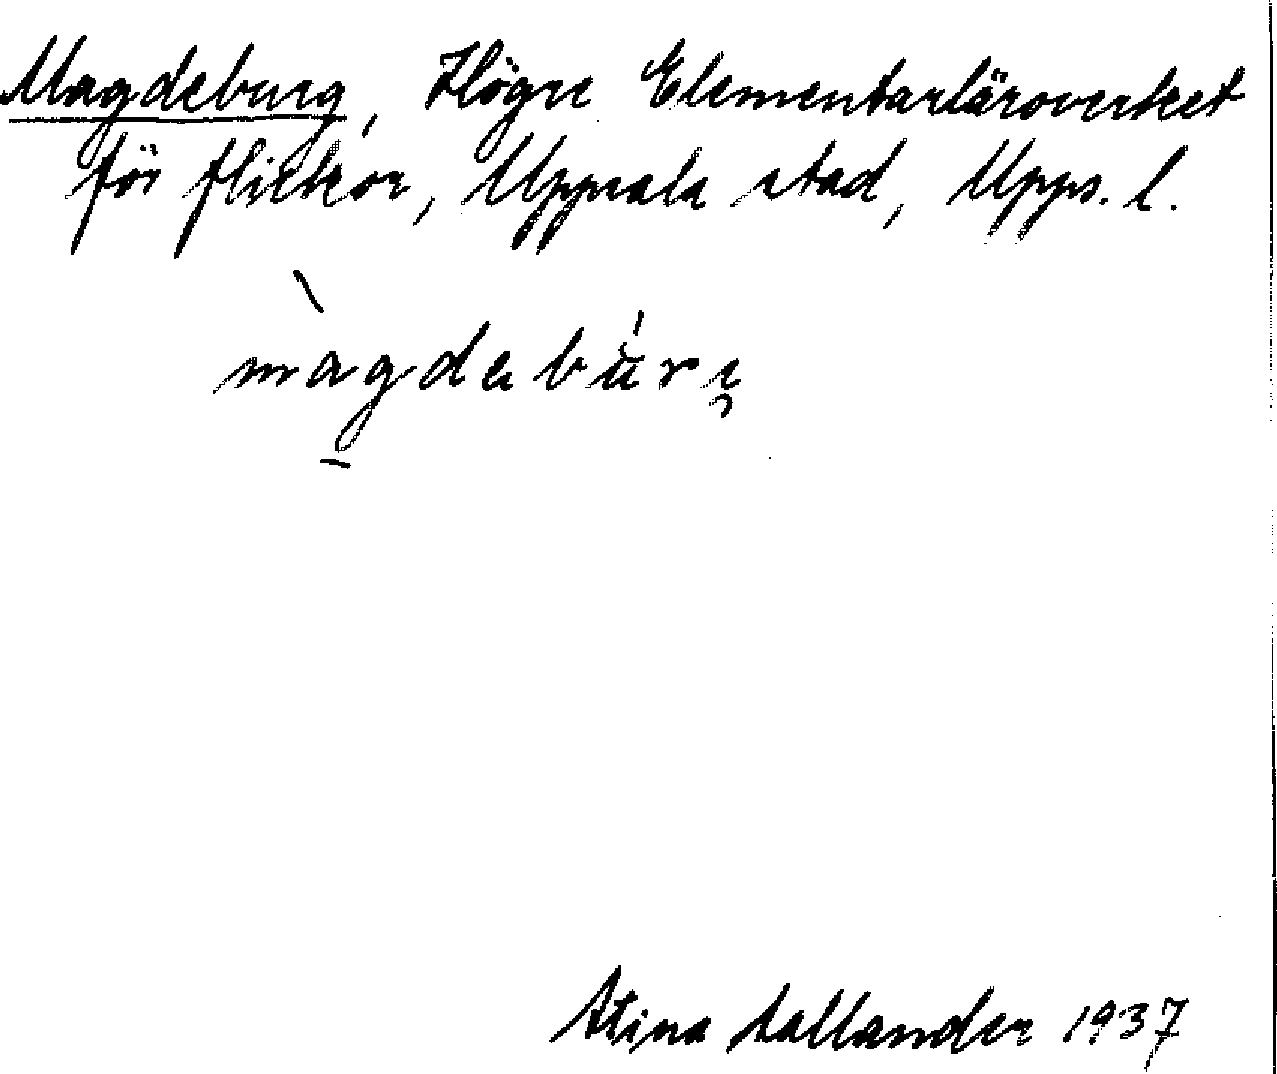 Magdeburg, Högre Elementarläroverket
för flickor, Uppsala stad, Upps. l.
Stina Sallander 1937